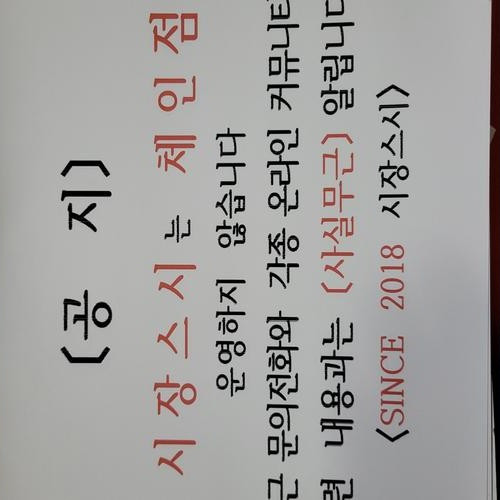 (공 지)
시장스시는 체인점
운영하지 않습니다
근 문의전화와 각종 온라인 커뮤니티
련 내용과는 (사실무근) 알립니다
<SINCE 2018 시장스시>